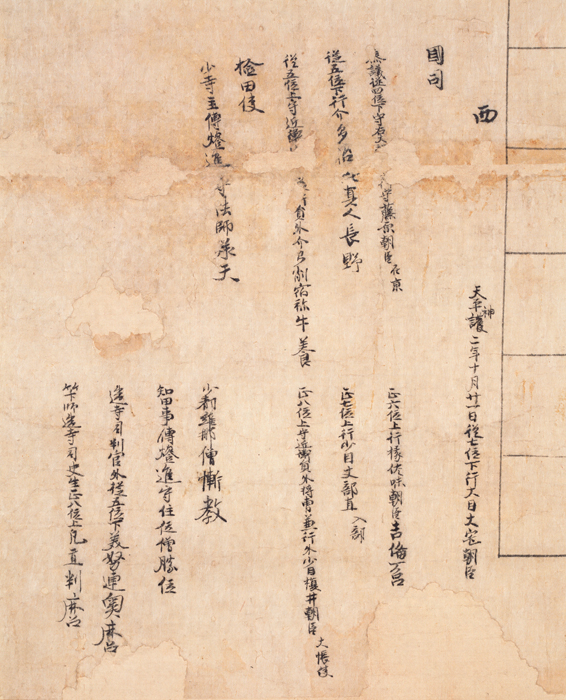 西
天平神護二年十月廿一日從七位下行大目大宅朝臣
國司
參議從四位下守右大
守藤原朝臣在京
從五位下行介多治比真人長野
從五位上守近衛
員外介弓削宿祢牛養
正六位上行掾佐味朝臣吉備万呂
正七位上行少目丈部直入部
正八位上守近衛員外将曹兼行員外少目榎井朝臣大帳使
検田使
少寺主傳燈進守法師承天
少都維那僧慚教
知田事傳燈進守住位僧勝位
造寺司判官外從五位下美努連奥麻呂
筭師造寺司史生正八位上凡直判麻呂